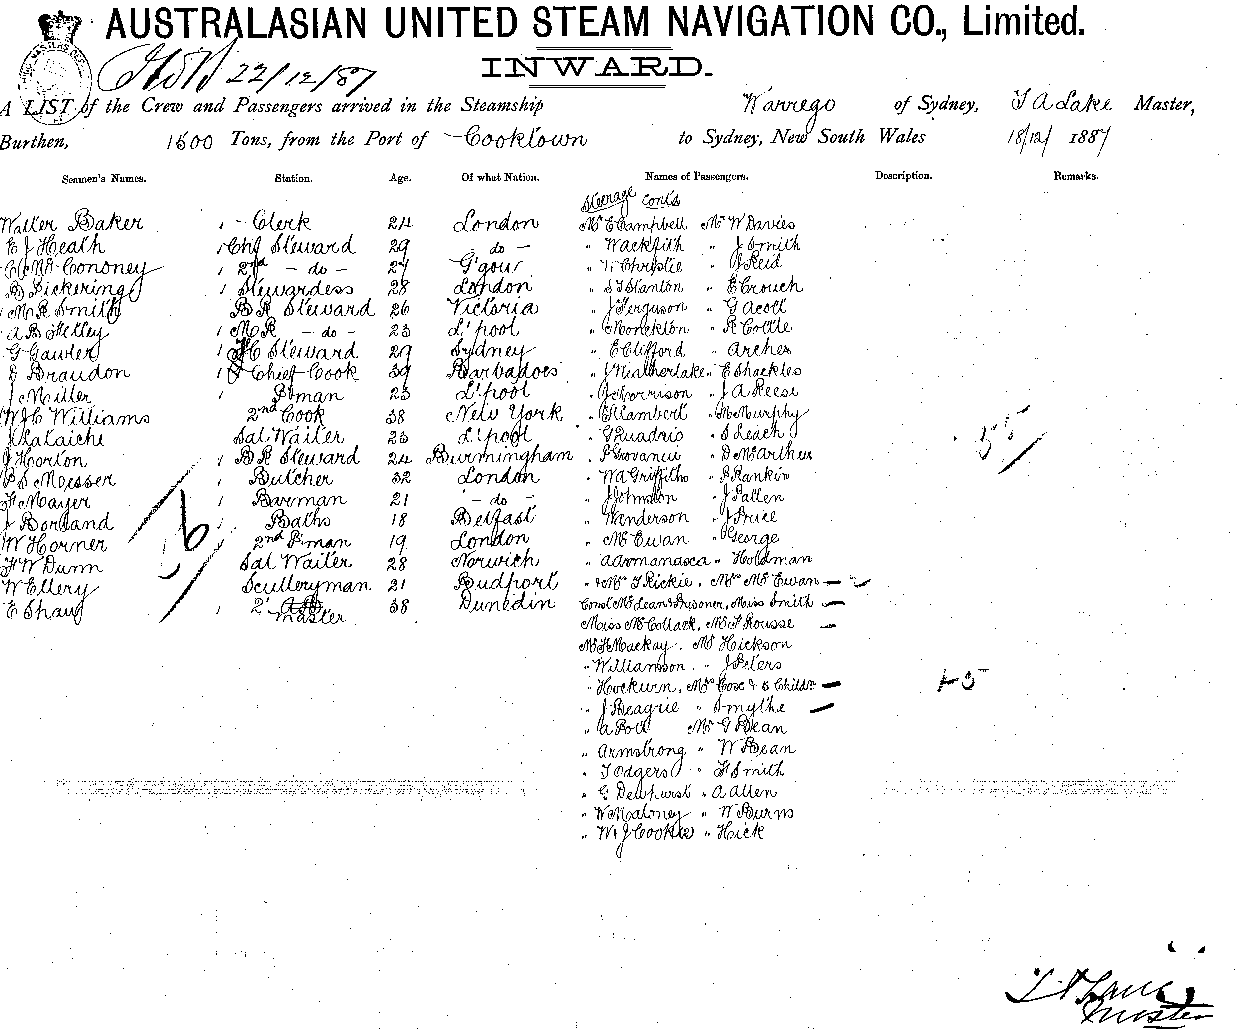 AUSTRALASIAN UNITED STEAM NAVIGATION CO., Limited.
22/12/87
INWARD.
A LIST of the Crew and Passengers arrived in the Steamship Warrego of Sydney, T A Lake Master,
Burthen, 1500 Tons, from the Port of Cooktown to Sydney, New South Wales 18/12/ 1887
Seamen's Names. Station. Age. Of what Nation. Names of Passengers. Description. Remarks.
Steerage Contd
Walter Baker 1 - Clerk 24 London Mr E Campbell Mr W Davies
E J Heath 1 Chf Steward 29 - do - " Wackfith " J Smith
McCononey 1 2nd - do - 27 G'gow " Christie " J Reid
B Pickering 1 Stewardess 28 London " S T Stanton " E Crouch
M R Smith B R Steward 26 Victoria " J Ferguson " G Acott
A B Hetley 1 M R - do - 23 L'pool " Monckton " R Cottle
G Gawler 1 F C Steward 29 Sydney " E Clifford " Archer
Braudon 1 Chief Cook 39 Barbadoes " J Neatherlake " E Shackles
J Miller 1 P'man 23 L'pool " J Morrison " J A Reese
W J C Williams 2nd Cook 38 New York " Lambert " Murphy
J Lalaiche Sal Waiter 23 L'pool " G Quadrio " S Leach
J Horton 1 B R Steward 24 Burmingham " P Giovanui " D McArthur
P S Messer 1 Butcher 32 London " W A Griffiths " J Rankin
F Mayer 1 Barman 21 - do - " J Johnston " J Pallen
J Borland 1 Baths 18 Belfast " W Anderson " J Price
W Horner 1 2nd P'man 19 London " McEwan " George
F W Dunn Sal Waiter 28 Norwich " A Armanasca " Holdman
W Ellery Sculleryman 21 Budport " & Mrs T Rickie, Mrs McEwan -
E Shaw 1 2' Master 38 Dunedin Const McLean & Prisoner, Miss Smith -
Miss McCollack, Mr F Rousse -
Mr H Mackay. Mr Hickson
" Williamson. " J Peters
" Hockurn, Mrs Coxe & 5 Childn - 45
" J Beagrie " Smythe -
" A Pott Mr G Bean
" Armstrong " W Bean
" Todgers " H Smith
" G Dewhurst " A Allen
" W Maloney " W Burns
" W J Cookie " Hick
T A Lake
Master